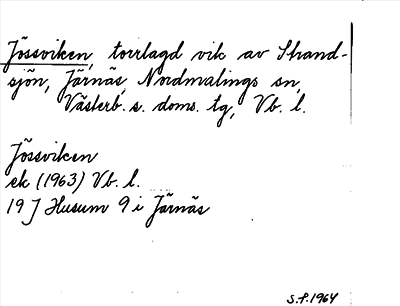 Jössviken, torrlagd vik av Strand-
sjön, Järnäs, Nordmalings sn,
Västerb. s. doms. tg, Vb. l.
Jössviken
ek (1963) Vb. l.
19 J Husum 9 i Järnäs
S.F. 1964